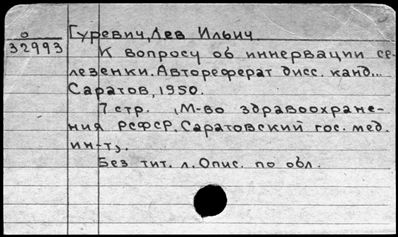 о
32993
Гуревич, Лев Ильич.
К вопросу об иннервации се-
лезенки. Автореферат дисс. канд...
Саратов, 1950.
7 стр. (М-во здравоохране-
ния РСФСР. Саратовский гос. мед.
ин-т).
Без тит. л. Опис. по обл.